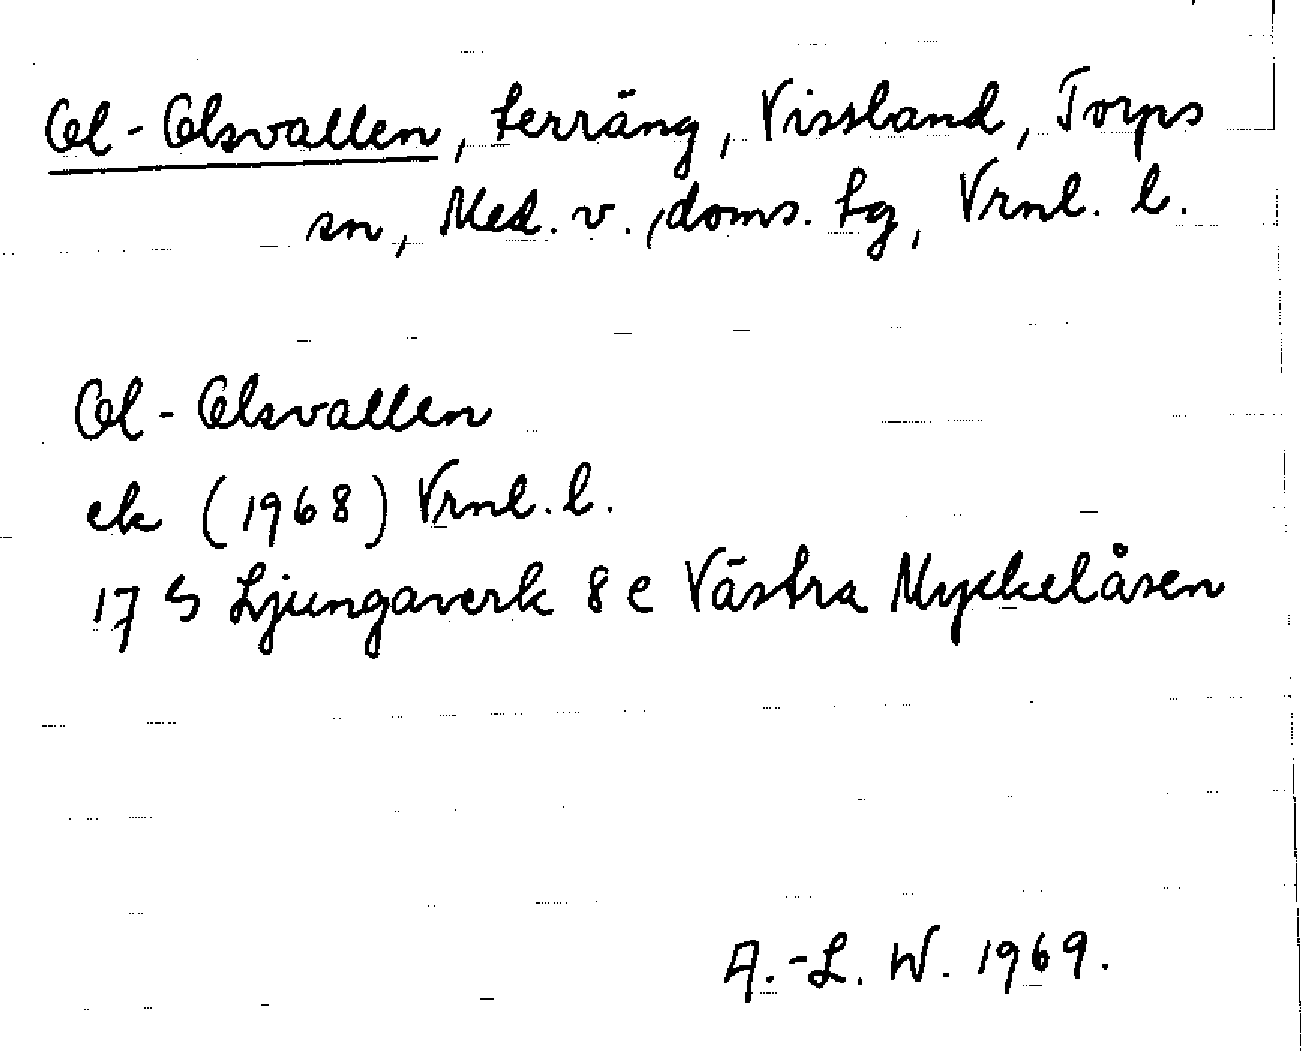 Ol-Olsvallen, terräng, Vissland, Torps
sn, Med. v. doms. tg, Vrnl. l.
Ol-Olsvallen
ek (1968) Vrnl. l.
17 G Ljungaverk 8 e Västra Myckelåsen
A.-L. W. 1969.